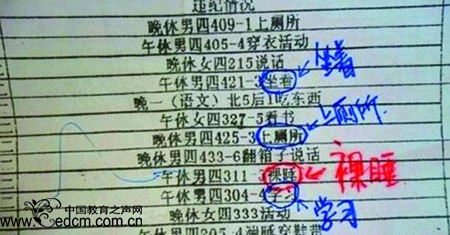 违纪情况
晚休男四409-1上厕所
午休男四405-4穿衣活动
晚休女四215说话
午休男四421-3坐着
坐着
晚一(语文)北5后1吃东西
午休女四327-5看书
上厕所
晚休男四425-3上厕所
晚休男四433-6翻箱子说话
午休男四311-3裸睡
裸睡
午休男四304-4学习
学习
晚休女四333活动
中国教育之声网
www.edcm.com.cn